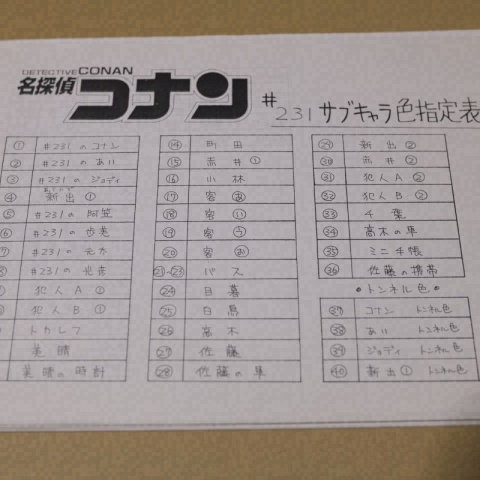 DETECTIVE CONAN
名探偵
コナン
#231 サブキャラ色指定表
① #231のコナン
② #231のあい
③ #231のジョディ
④ 新出①
⑤ #231の阿笠
⑥ #231の歩美
⑦ #231の元太
⑧ #231の光彦
犯人A①
犯人B①
トカレフ
美晴
美晴の時計
⑭ 町田
⑮ 赤井①
⑯ 小林
⑰ 客あ
⑱ 客い
⑲ 客う
⑳ 客お
㉑-㉓ バス
㉔ 目暮
㉕ 白鳥
㉖ 高木
㉗ 佐藤
㉘ 佐藤の車
㉙ 新出②
㉚ 赤井②
㉛ 犯人A②
㉜ 犯人B②
㉝ 千葉
㉞ 高木の車
㉟ ミニ手帳
㊱ 佐藤の携帯
●トンネル色●
㊲ コナン トンネル色
㊳ あい トンネル色
㊴ ジョディ トンネル色
㊵ 新出① トンネル色